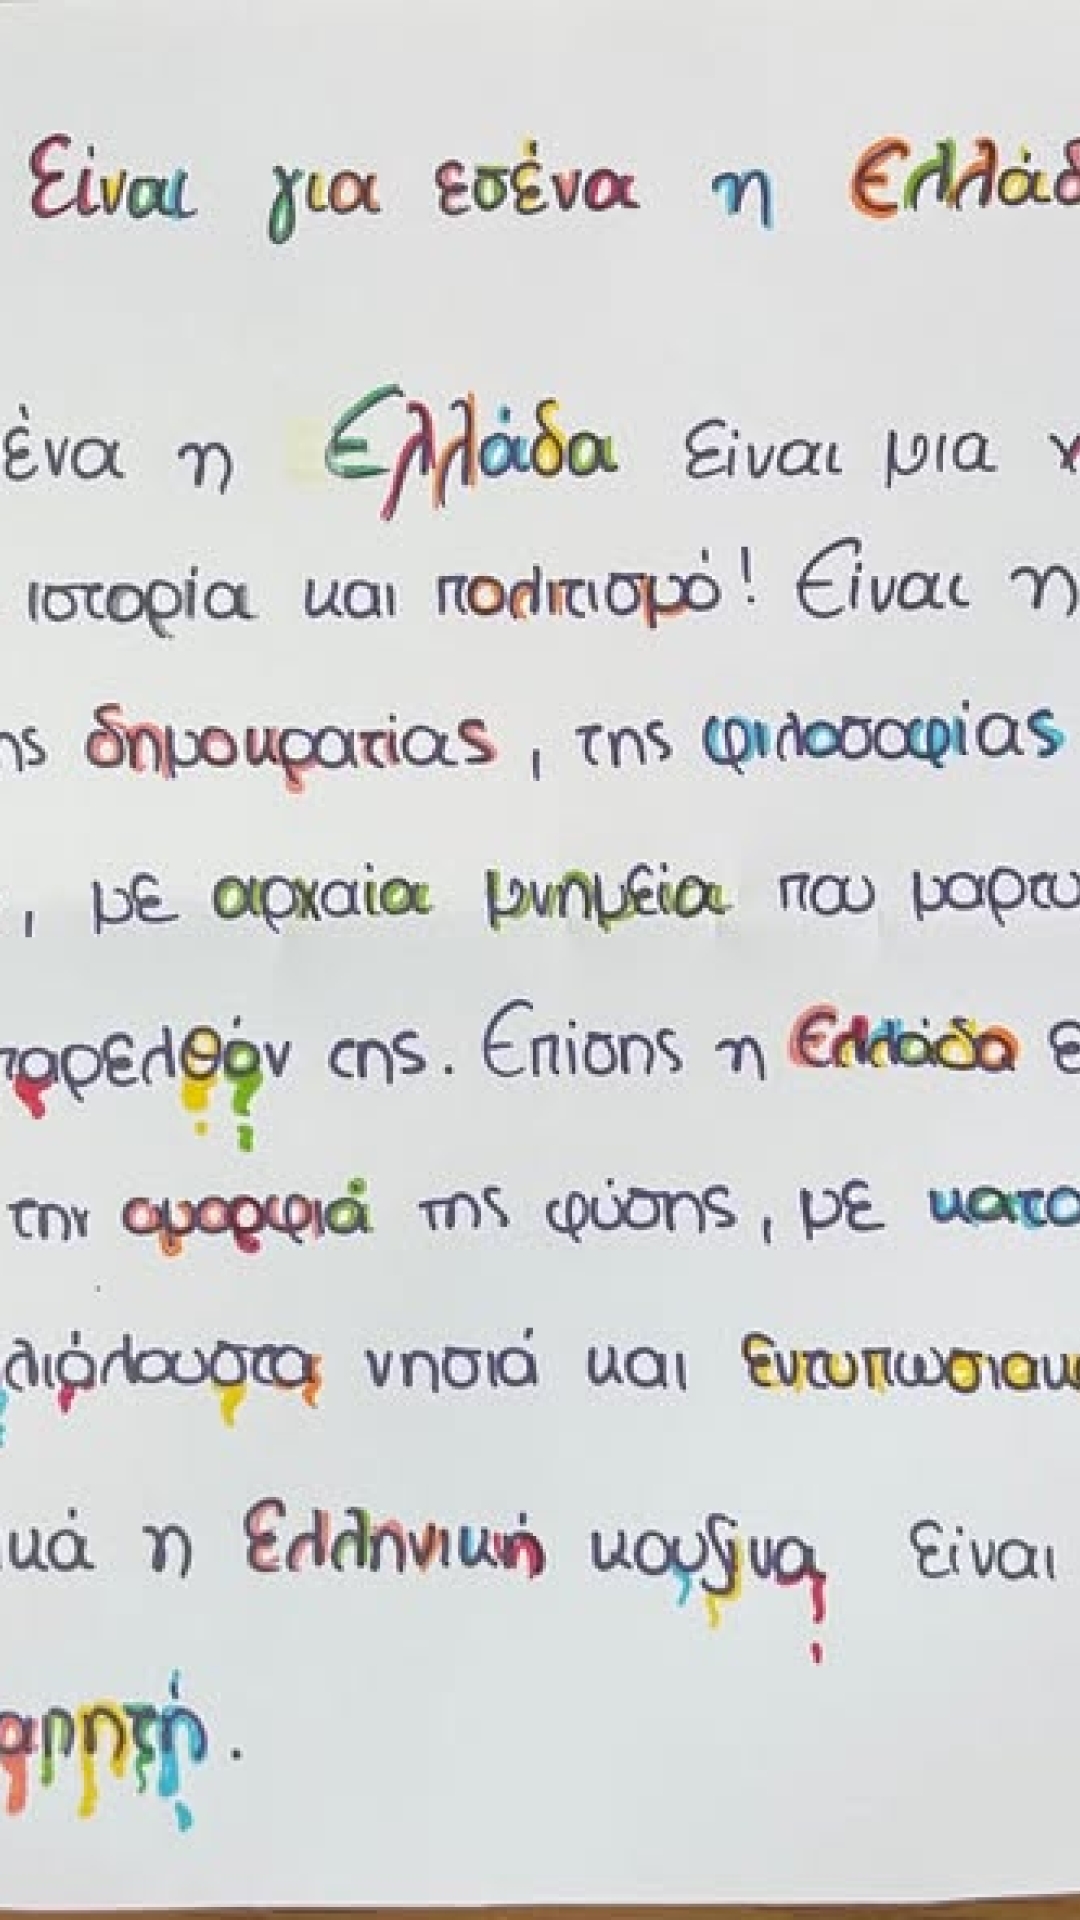 Είναι για εσένα η Ελλάδ
ένα η Ελλάδα Είναι μια χ
ιστορία και πολιτισμό! Είναι η
ης δημοκρατίας, της φιλοσοφίας
, με αρχαία μνημεία που μαρτυ
παρελθόν της. Επίσης η Ελλάδα ε
την ομορφιά της φύσης, με κατα
λιόλουστα νησιά και εντυπωσιακ
ικά η Ελληνική κουζινα είναι
αρητή.